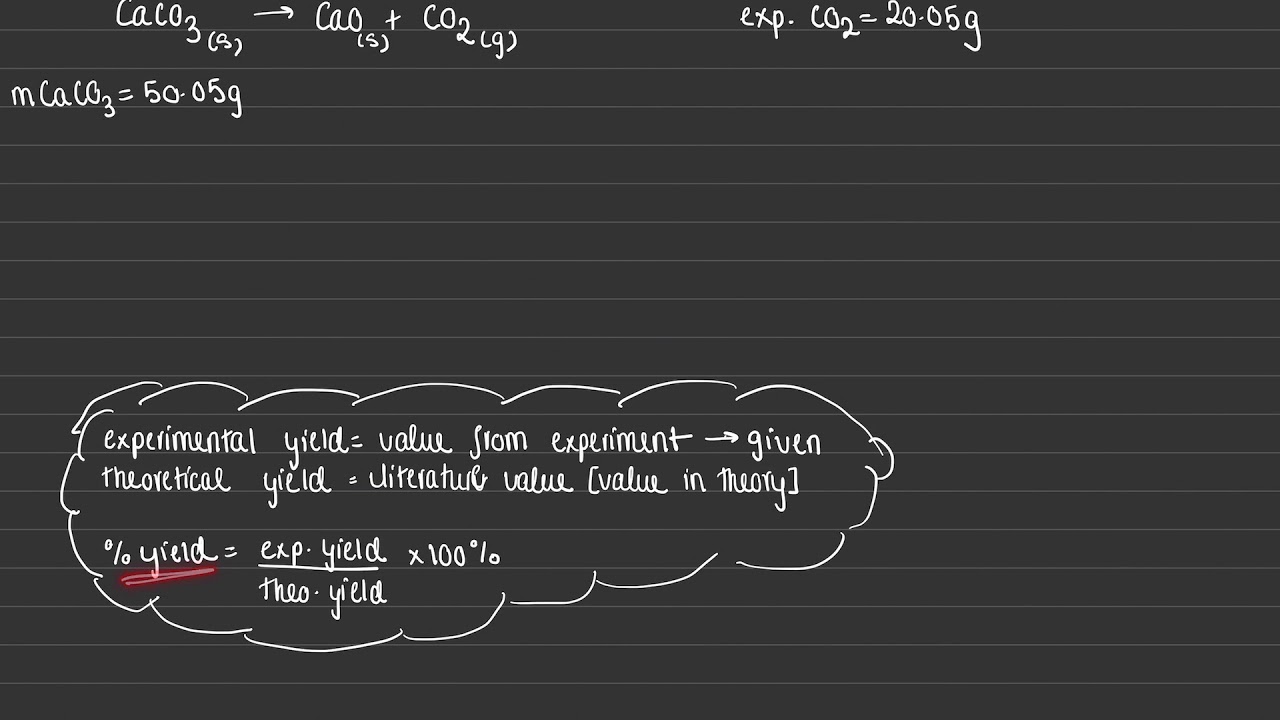 CaCO₃(s) → CaO(s) + CO₂(g)
exp. CO₂ = 20.05g
mCaCO₃ = 50.05g
experimental yield = value from experiment → given
theoretical yield = literature value [value in theory]
% yield = exp. yield / theo. yield × 100%